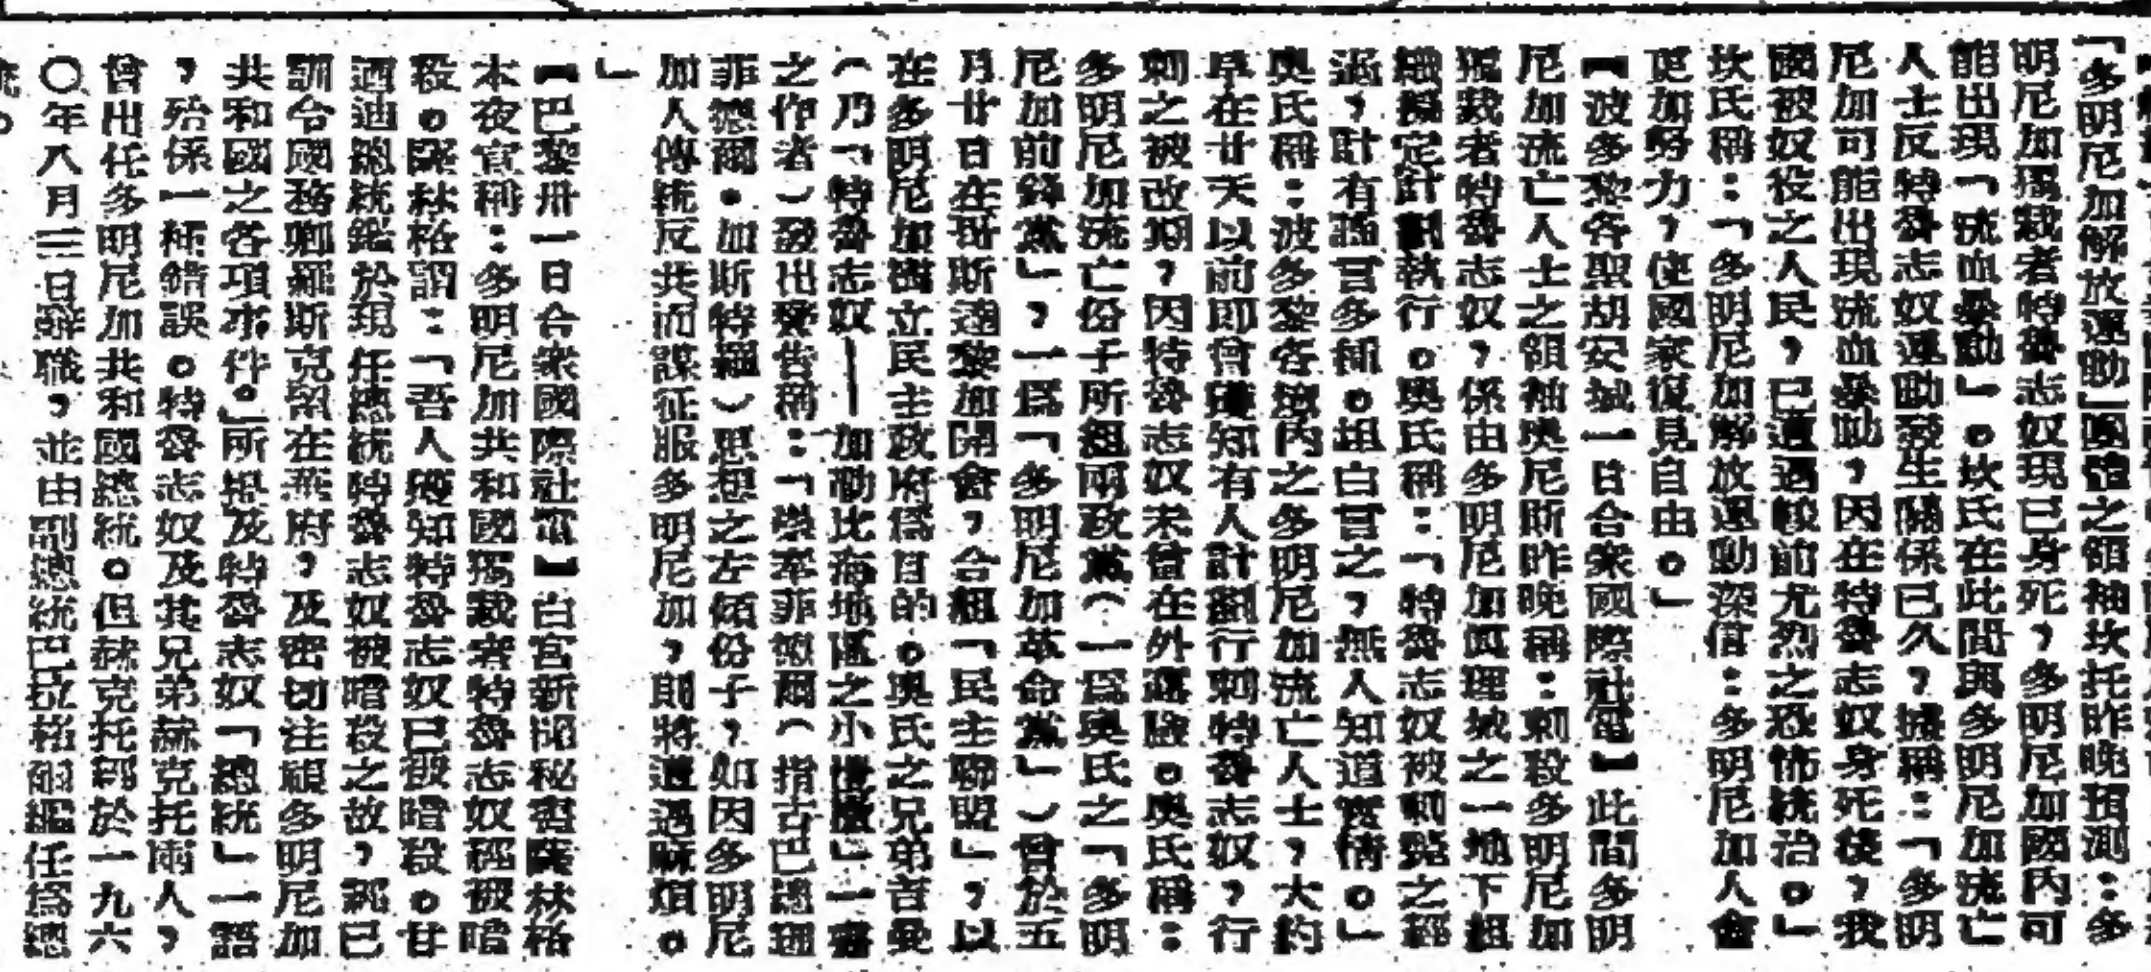 「多明尼加解放運動」團體之領袖坎托昨晚預測：多
明尼加獨裁者特魯志奴現已身死，多明尼加國內可
能出現「流血暴動」。坎氏在此間與多明尼加流亡
人士反特魯志奴運動發生關係已久，據稱：「多明
尼加可能出現流血暴動，因在特魯志奴身死後，我
國被奴役之人民，已遭遇較前尤烈之恐怖統治。」
坎氏稱：「多明尼加解放運動深信：多明尼加人會
更加努力，使國家復見自由。」
【波多黎各聖胡安城一日合衆國際社電】此間多明
尼加流亡人士之領袖奥尼斯昨晚稱：刺殺多明尼加
獨裁者特魯志奴，係由多明尼加真理城之一地下組
織擬定計劃執行。奥氏稱：「特魯志奴被刺斃之經
過，計有謠言多種。坦白言之，無人知道實情。」
奥氏稱：波多黎各境內之多明尼加流亡人士，大約
早在廿天以前即曾獲知有人計劃行刺特魯志奴，行
刺之被改期，因特魯志奴未曾在外露臉。奥氏稱：
多明尼加流亡份子所組兩政黨（一爲奥氏之「多明
尼加前鋒黨」，一爲「多明尼加革命黨」）曾於五
月廿日在哥斯達黎加開會，合組「民主聯盟」，以
在多明尼加樹立民主政府爲目的。奥氏之兄弟吉曼
（乃「特魯志奴——加勒比海地區之小愷撒」一書
之作者）發出警告稱：「樂率菲德爾（指古巴總理
菲德爾・加斯特羅）思想之左傾份子，如因多明尼
加人傳統反共而謀征服多明尼加，則將遭遇麻煩。
」
【巴黎卅一日合衆國際社電】白宮新聞秘書薩林格
本夜宣稱：多明尼加共和國獨裁者特魯志奴經被暗
殺。薩林格謂：「吾人獲知特魯志奴已被暗殺。甘
迺迪總統鑑於現任總統特魯志奴被暗殺之故，就已
訓令國務卿羅斯克留在華府，及密切注視多明尼加
共和國之各項事件。」所提及特魯志奴「總統」一語
，殆係一種錯誤。特魯志奴及其兄弟赫克托兩人，
曾出任多明尼加共和國總統。但赫克托卻於一九六
〇年八月三日辭職，並由副總統巴拉格耐繼任爲總
統。